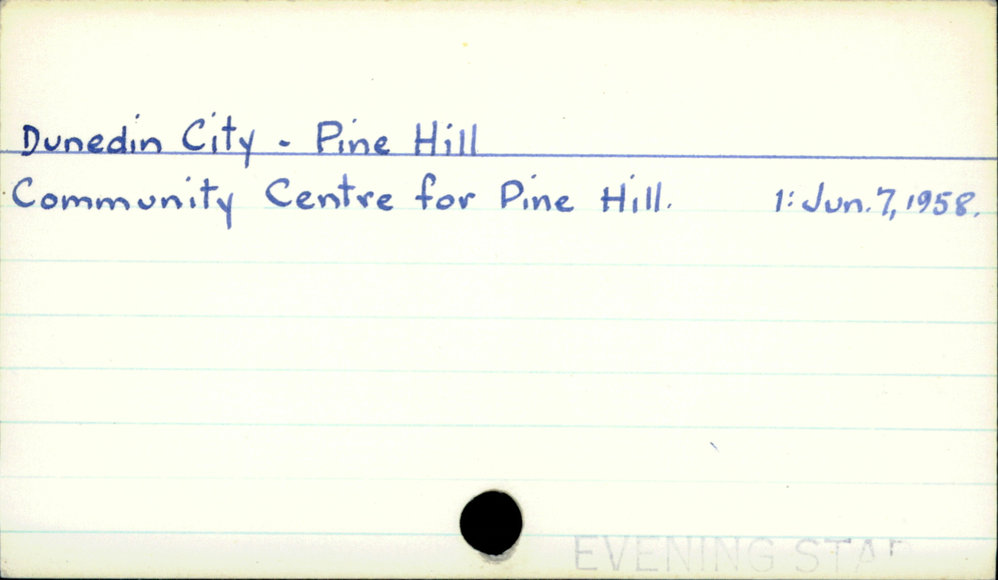 Dunedin City - Pine Hill
Community Centre for Pine Hill. 1: Jun. 7, 1958.
EVENING STAR